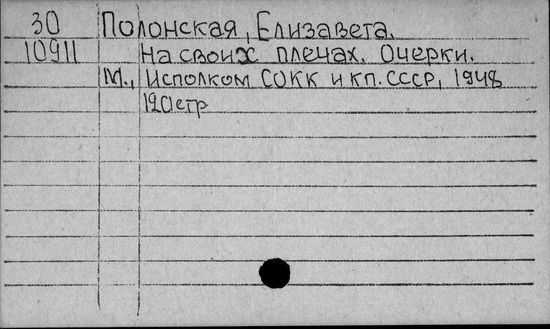 30 Полонская, Елизавета.
10911 На своих плечах. Очерки.
М., Исполком СОКК и КП. СССР, 1948
120 стр